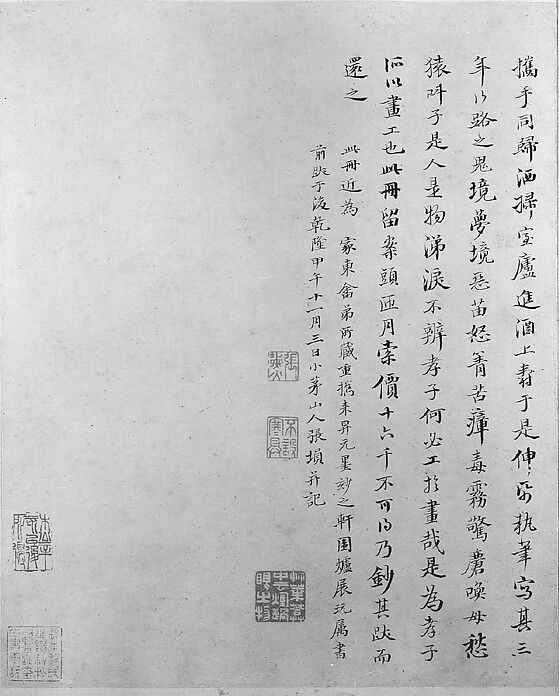 攜手同歸洒掃室廬進酒上壽于是伸紙執筆寫其三
年以路之鬼境夢境惡苗怒箐苦瘴毒霧驚麏喚母愁
猿叫子是人是物涕淚不辨孝子何必工於畫哉是為孝子
所以畫工也此冊留案頭匝月索價十六千不可得乃鈔其跋而
還之
此冊近為家東畬弟所藏重攜來昇元墨妙之軒圍爐展玩屬書
前跋于後乾隆甲午十一月三日小茅山人張塤并記
張
不設
寒具